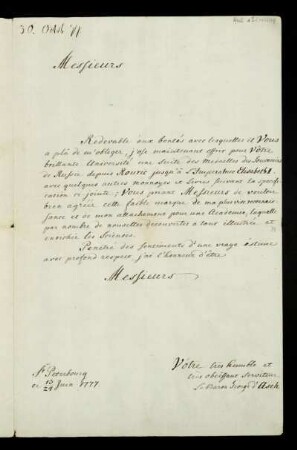 Messieurs
Redevable aux bontés avec lesquelles il Vous
a plû de m'obliger, j'ose maintenant offrir pour Vôtre
brillante Université une suite des Medailles des Souverains
de Russie depuis Rouric jusqu'à l'Imperatrice Elisabeth I.
avec quelques autres monnoyes et livres suivant la specifi-
cation ci jointe; Vous priant Messieurs de vouloir
bien agréer cette foible marque de ma plus vive reconnois-
sance et de mon attachement pour une Academie, laquelle
par nombre de nouvelles decouvertes a tout illustré et
enrichi les Sciences.
Penetré des sentiments d'une vraye estime
avec profond respect, j'ai l'honneur d'être
Messieurs
St Petersbourg
ce 13/24 Juin 1777.
Vôtre très humble et
très obéissant Serviteur
Le Baron George d'Asch